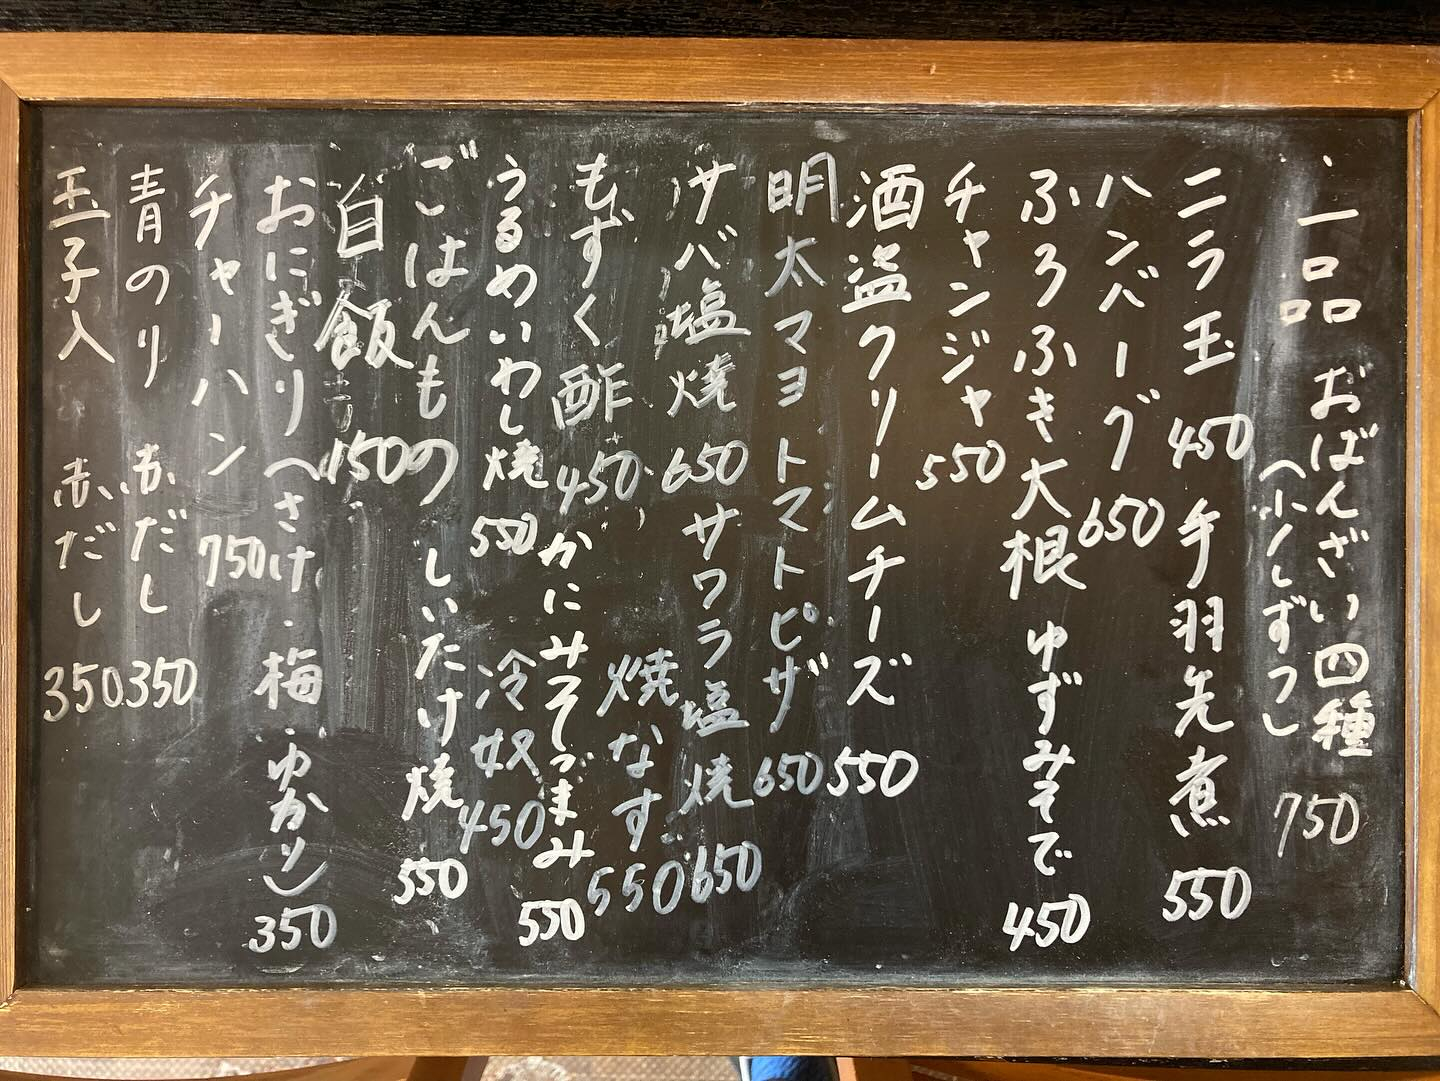 一品 おばんざい四種 750
(少しずつ)
ニラ玉 450 手羽先煮 550
ハンバーグ 650
ふろふき大根 ゆずみそで 450
チャンジャ 550
酒盗クリームチーズ 550
明太マヨトマトピザ 650
サバ塩焼 650 サワラ塩焼 650
焼なす 550
もずく酢 450 かにみそつまみ 550
うるめいわし焼 550 冷奴 450
しいたけ焼 550
ごはんもの
白飯 150
おにぎり(さけ・梅・ゆかり) 350
チャーハン 750
青のり 赤だし 350
玉子入 赤だし 350